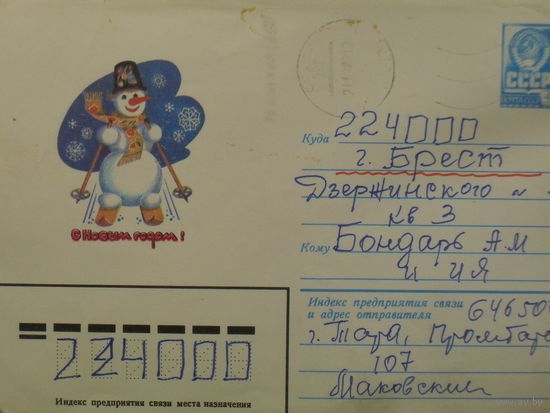 СССР
ПОЧТА
Куда 224000
г. Брест
Дзержинского
кв 3
Кому Бондарь А.М
и И.Я
С Новым годом!
Индекс предприятия связи
и адрес отправителя 64650
г. Тара, Промбаза
107
Маковский
224000
Индекс предприятия связи места назначения
ay.by